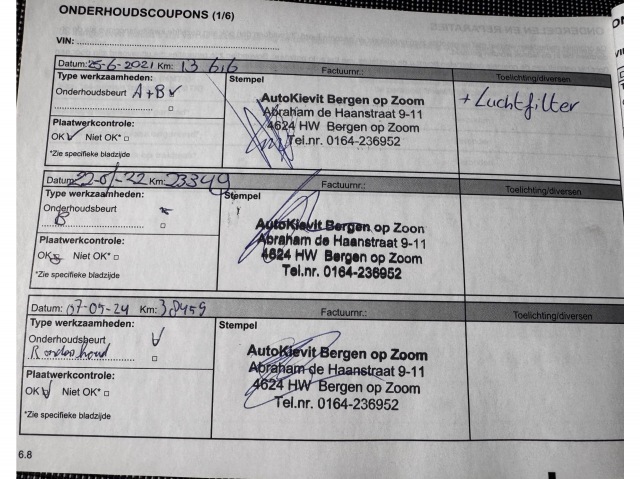 ONDERHOUDSCOUPONS (1/6)
VIN:
Datum: 25-6-2021 Km: 13 616 Factuurnr.: Toelichting/diversen
Type werkzaamheden: Stempel
Onderhoudsbeurt A+B
AutoKievit Bergen op Zoom
Abraham de Haanstraat 9-11
4624 HW Bergen op Zoom
Tel.nr. 0164-236952
+ Luchtfilter
Plaatwerkcontrole:
OK Niet OK*
*Zie specifieke bladzijde
Datum: Km: 23349 Factuurnr.: Toelichting/diversen
Type werkzaamheden: Stempel
Onderhoudsbeurt
B
AutoKievit Bergen op Zoon
Abraham de Haanstraat 9-11
4624 HW Bergen op Zoom
Tel.nr. 0164-236952
Plaatwerkcontrole:
OK Niet OK*
*Zie specifieke bladzijde
Datum: 07-05-24 Km: 38459 Factuurnr.: Toelichting/diversen
Type werkzaamheden: Stempel
Onderhoudsbeurt
AutoKievit Bergen op Zoom
Abraham de Haanstraat 9-11
4624 HW Bergen op Zoom
Tel.nr. 0164-236952
Plaatwerkcontrole:
OK Niet OK*
*Zie specifieke bladzijde
6.8